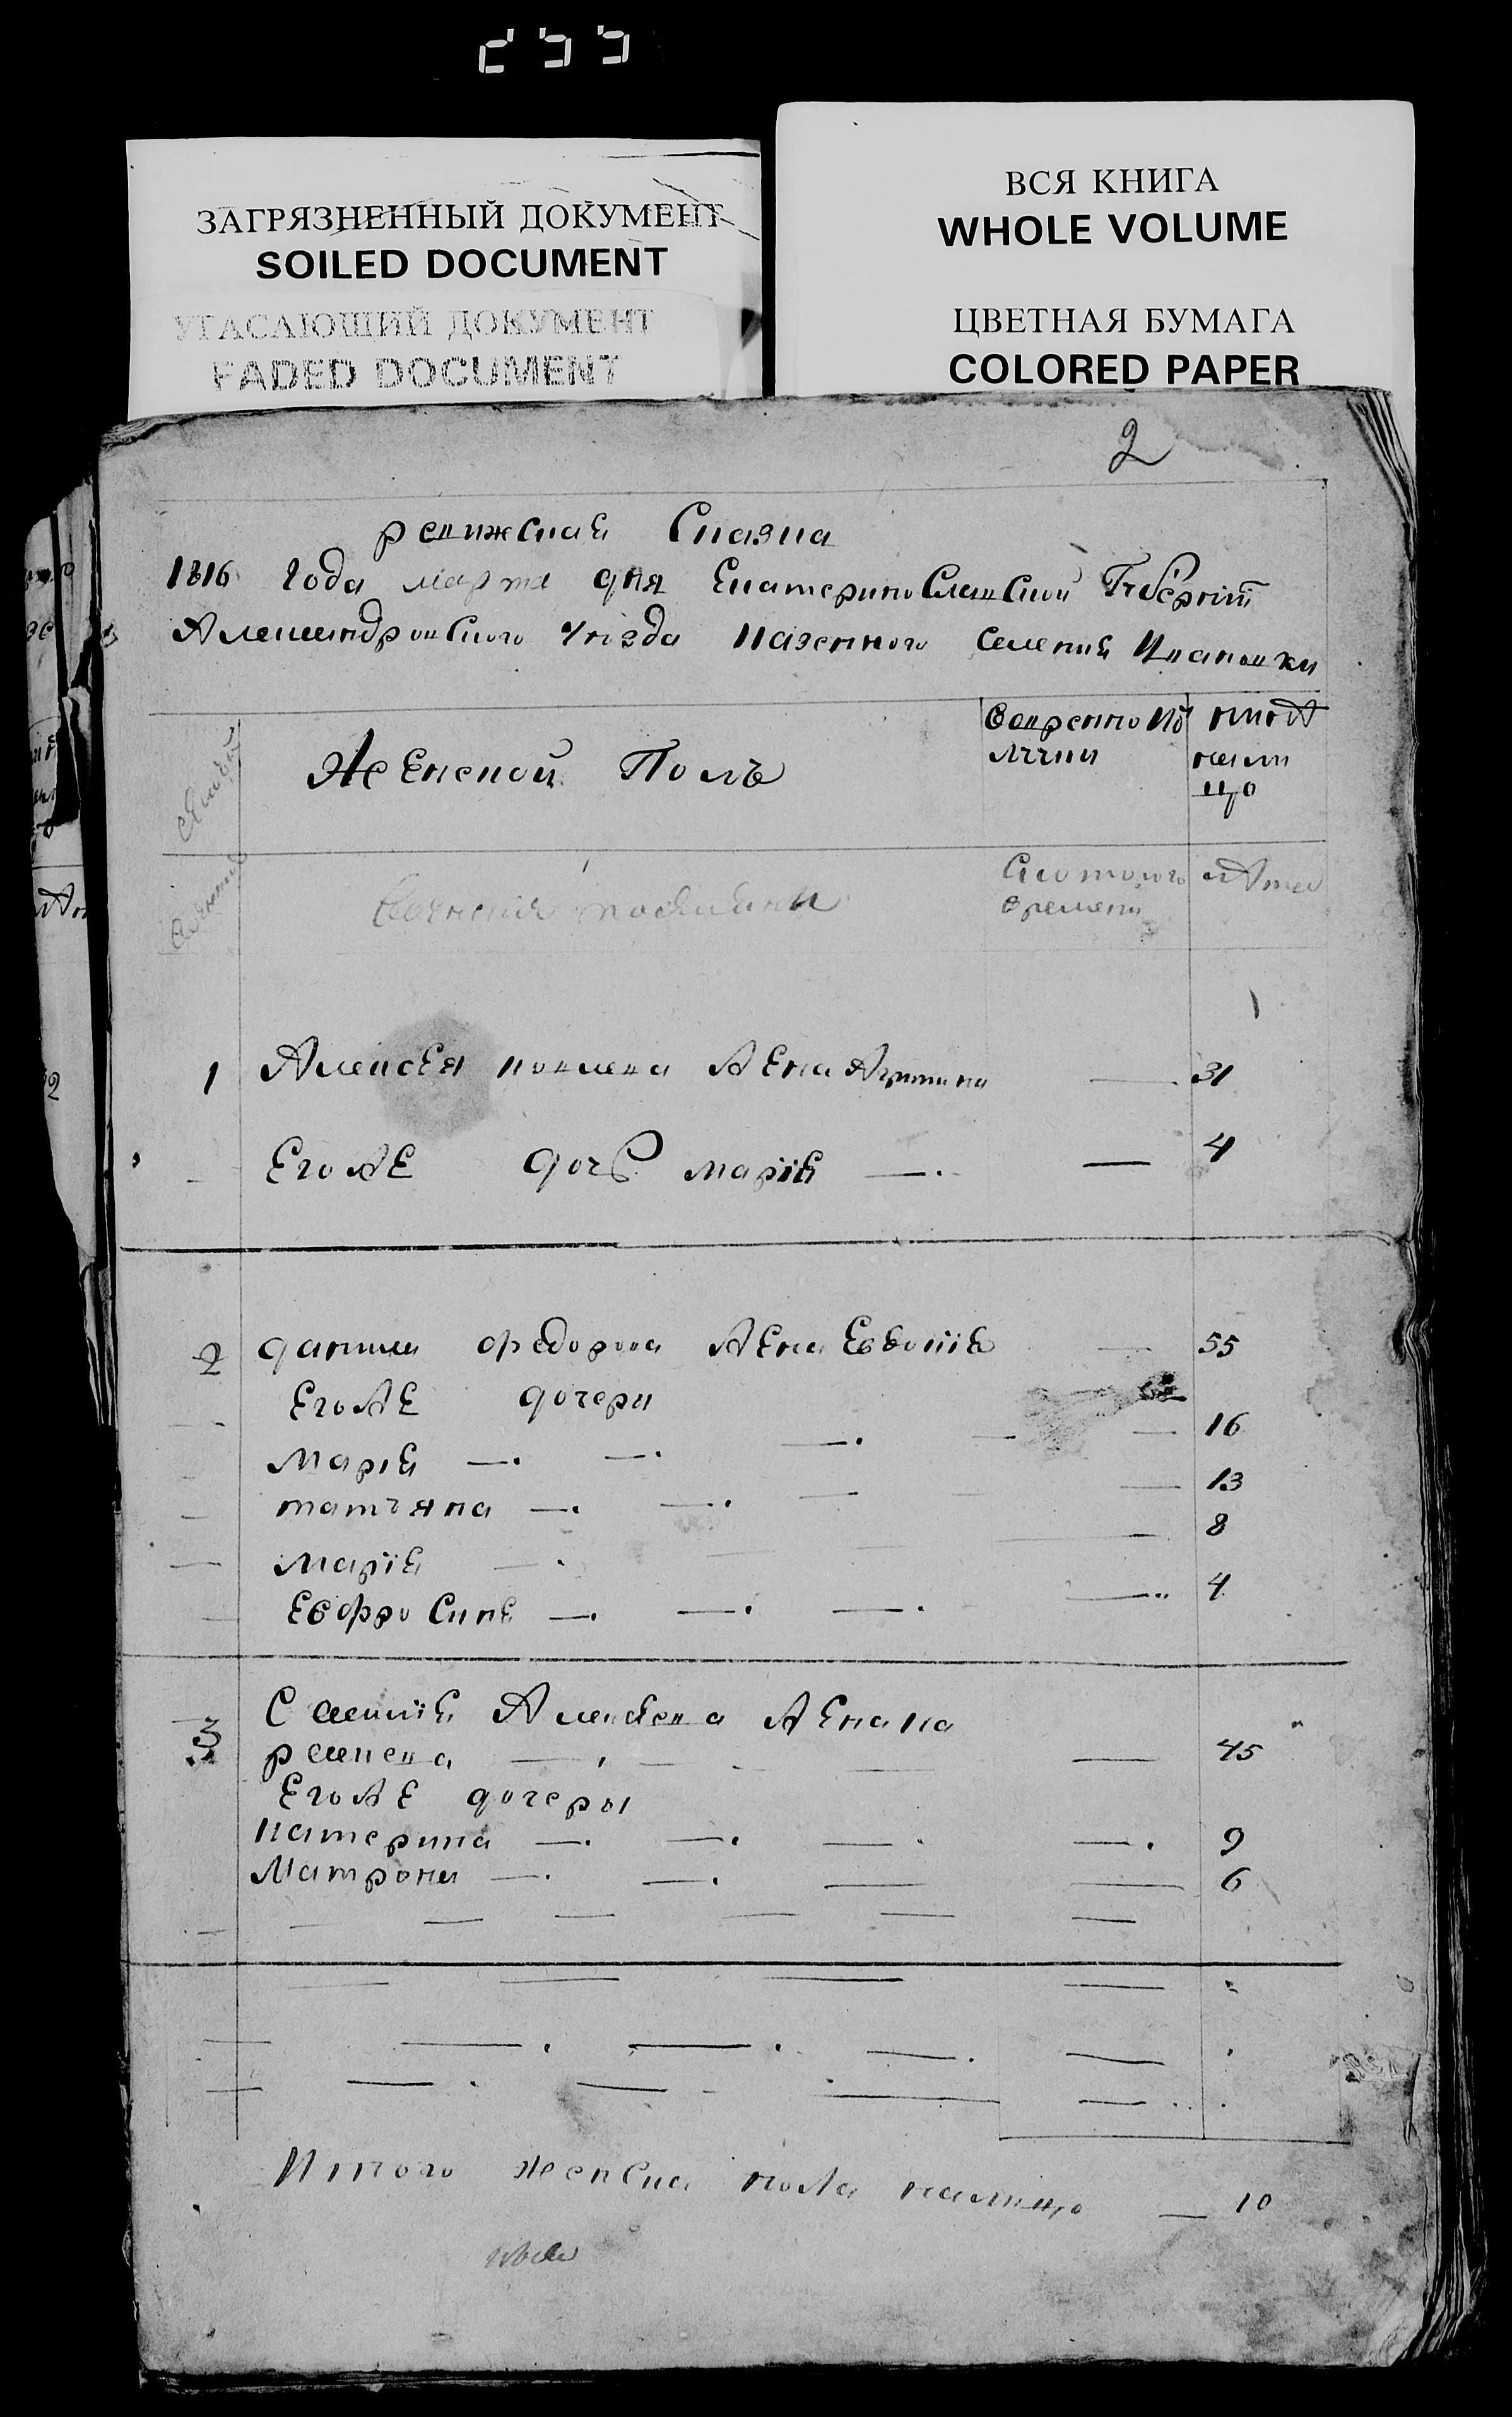 ЗАГРЯЗНЕННЫЙ ДОКУМЕНТ
SOILED DOCUMENT
УГАСАЮЩИЙ ДОКУМЕНТ
FADED DOCUMENT
ВСЯ КНИГА
WHOLE VOLUME
ЦВЕТНАЯ БУМАГА
COLORED PAPER
2
ревижская Сказка
1816 года марта дня Екатеринославской Губернiи
Александровского уезда казенного селения Ивановки
Женской Полъ
вовременной
отлучки
ныне
на ли
цо
Семьи
Женския
С которого
времени
Лета
1 Алексея жена 31
Его же дочь марiя — 4
2 данила федорова жена Евдокiя 55
Его же дочери
Марiя 16
татьяна 13
Марiя 8
Евфросиня 4
3 Савелiя Алексеева жена
45
Его же дочеры
катерина 9
Матрона 6
Итого женска пола налицо — 10